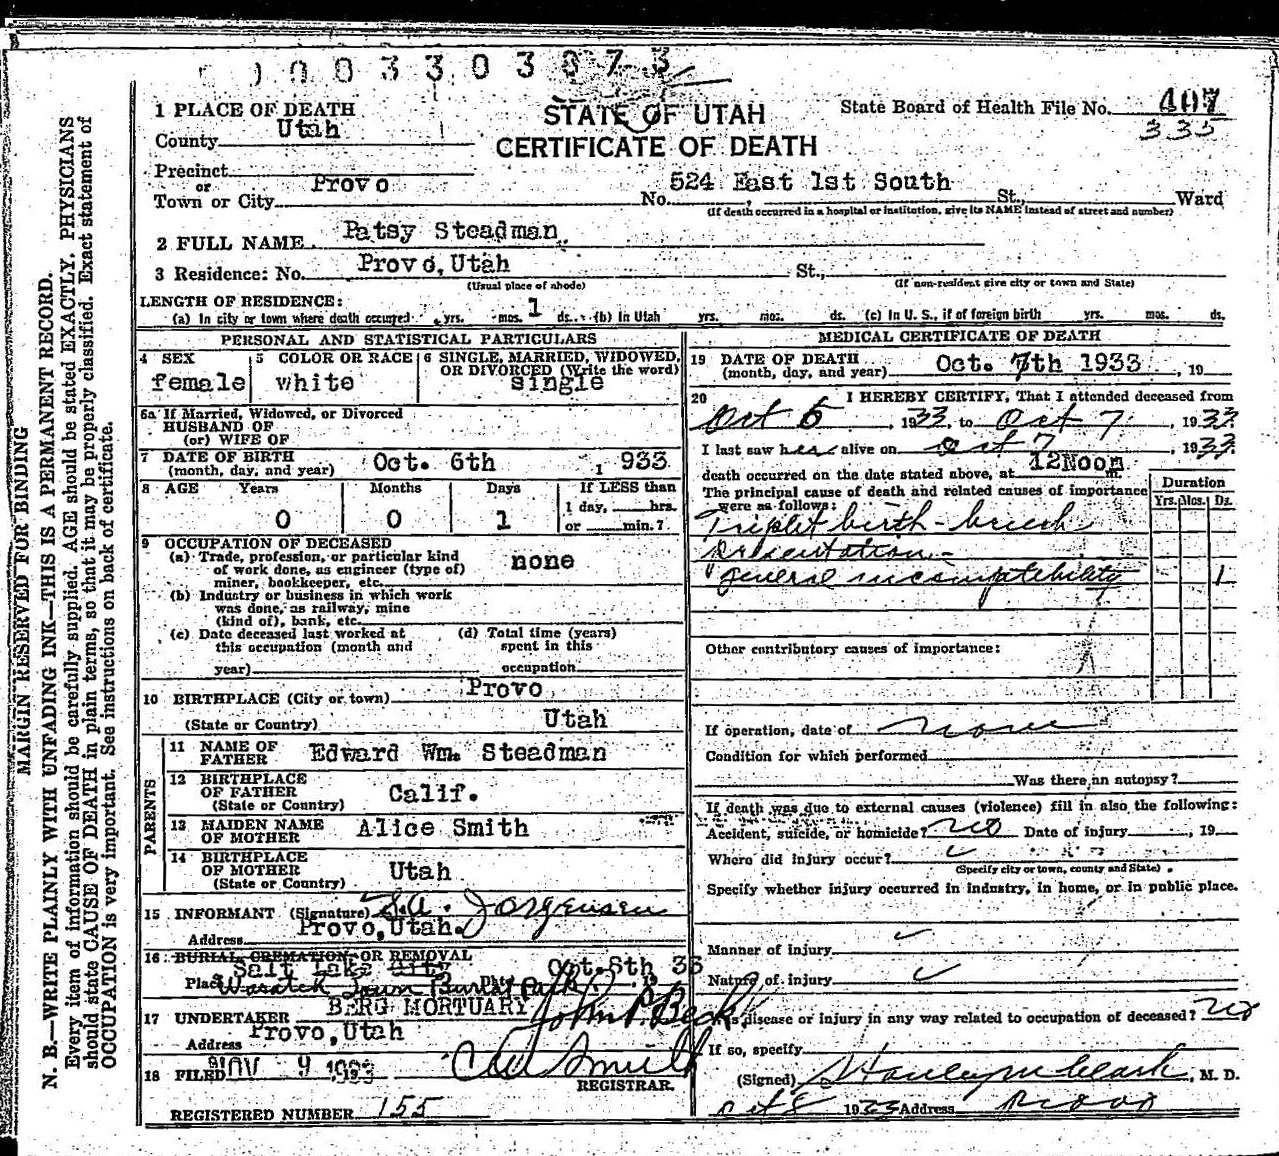 0 0 0 3 3 0 3 0 7 3
1 PLACE OF DEATH
STATE OF UTAH
CERTIFICATE OF DEATH
State Board of Health File No. 407
335
County Utah
Precinct
or
Town or City Provo No. 524 East 1st South St., Ward
(If death occurred in a hospital or institution, give its NAME instead of street and number)
2 FULL NAME Patsy Steadman
3 Residence: No. Provo, Utah St.,
(Usual place of abode) (If non-resident give city or town and State)
LENGTH OF RESIDENCE:
(a) In city or town where death occurred yrs. mos. 1 ds. (b) In Utah yrs. mos. ds. (c) In U. S., if of foreign birth yrs. mos. ds.
PERSONAL AND STATISTICAL PARTICULARS
4 SEX female
5 COLOR OR RACE white
6 SINGLE, MARRIED, WIDOWED, OR DIVORCED (Write the word) single
6a If Married, Widowed, or Divorced
HUSBAND OF
(or) WIFE OF
7 DATE OF BIRTH
(month, day, and year) Oct. 6th 1933
8 AGE Years Months Days If LESS than
0 0 1 1 day, hrs.
or min.?
9 OCCUPATION OF DECEASED
(a) Trade, profession, or particular kind
of work done, as engineer (type of)
miner, bookkeeper, etc. none
(b) Industry or business in which work
was done, as railway, mine
(kind of), bank, etc.
(c) Date deceased last worked at
this occupation (month and
year)
(d) Total time (years)
spent in this
occupation
10 BIRTHPLACE (City or town) Provo
(State or Country) Utah
PARENTS
11 NAME OF
FATHER Edward Wm. Steadman
12 BIRTHPLACE
OF FATHER
(State or Country) Calif.
13 MAIDEN NAME
OF MOTHER Alice Smith
14 BIRTHPLACE
OF MOTHER
(State or Country) Utah
15 INFORMANT (Signature) S.A. Jorgensen
Address Provo, Utah.
16 BURIAL CREMATION, OR REMOVAL
Salt Lake City Oct. 8th 33
Place Wasatch Lawn Burial Park Date 19
17 UNDERTAKER BERG MORTUARY John P. Beck
Address Provo, Utah
18 FILED NOV 9 1933
REGISTRAR.
REGISTERED NUMBER 155
MEDICAL CERTIFICATE OF DEATH
19 DATE OF DEATH
(month, day, and year) Oct. 7th 1933, 19
20 I HEREBY CERTIFY, That I attended deceased from
Oct 6, 1933 to Oct 7, 1933.
I last saw her alive on Oct 7, 1933.
death occurred on the date stated above, at 12Noon
The principal cause of death and related causes of importance
were as follows:
Duration
Yrs. Mos. Ds.
Triplet birth - breech
presentation -
general incompatebility 1
Other contributory causes of importance:
If operation, date of none
Condition for which performed
Was there an autopsy?
If death was due to external causes (violence) fill in also the following:
Accident, suicide, or homicide? no Date of injury , 19
Where did injury occur?
(Specify city or town, county and State)
Specify whether injury occurred in industry, in home, or in public place.
Manner of injury
Nature of injury
Was disease or injury in any way related to occupation of deceased? no
If so, specify
(Signed) , M. D.
Oct 8 1933 Address Provo
MARGIN RESERVED FOR BINDING
N. B.—WRITE PLAINLY WITH UNFADING INK—THIS IS A PERMANENT RECORD.
Every item of information should be carefully supplied. AGE should be stated EXACTLY. PHYSICIANS
should state CAUSE OF DEATH in plain terms, so that it may be properly classified. Exact statement of
OCCUPATION is very important. See instructions on back of certificate.